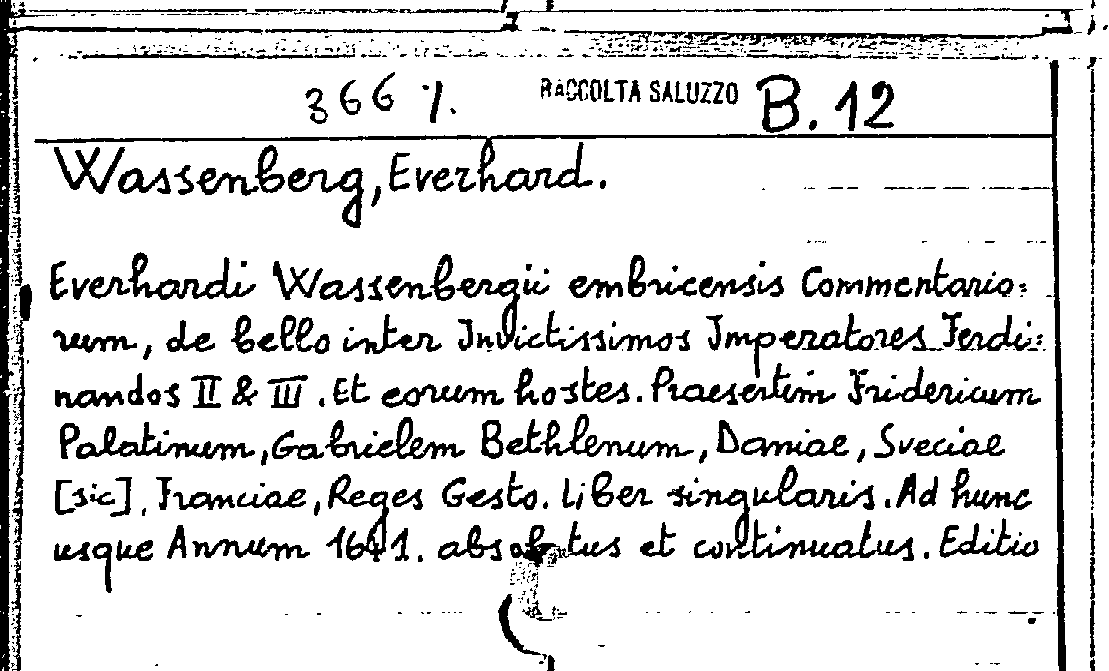 366 %. RACCOLTA SALUZZO B. 12
Wassenberg, Everhard.
Everhardi Wassenbergii embricensis Commentario=
rum, de bello inter Invictissimos Imperatores Ferdi=
nandos II & III. Et eorum hostes. Praesertim Fridericum
Palatinum, Gabrielem Bethlenum, Daniae, Sveciae
[sic], Franciae, Reges Gesto. Liber singularis. Ad hunc
usque Annum 1641. absolutus et continuatus. Editio